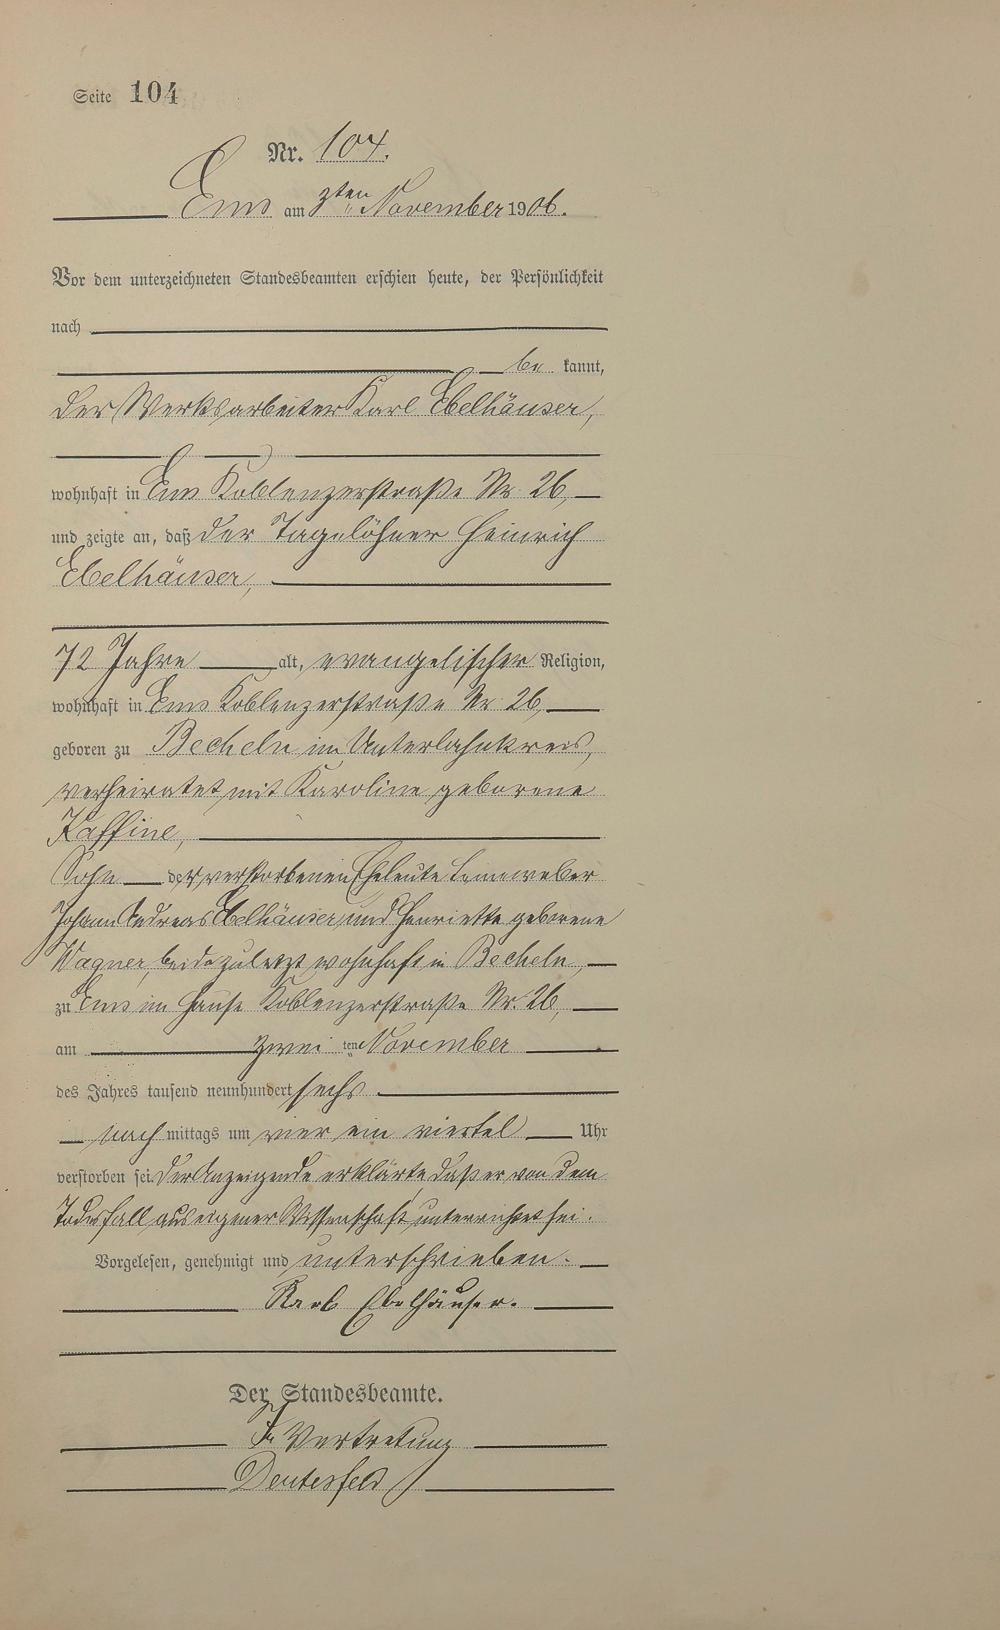 Seite 104
Nr. 104.
Ems am 3ten November 1906.
Vor dem unterzeichneten Standesbeamten erschien heute, der Persönlichkeit
nach
be kannt,
der Werksarbeiter Karl Ebelhäuser,
wohnhaft in Ems Koblenzerstraße Nr. 26,
und zeigte an, daß der Tagelöhner Heinrich
Ebelhäuser,
72 Jahre alt, evangelischer Religion,
wohnhaft in Ems Koblenzerstraße Nr. 26,
geboren zu Becheln im Unterlahnkreis,
verheiratet mit Karoline geborene
Kaffine,
Sohn der verstorbenen Eheleute Leineweber
Johann Andreas Ebelhäuser und Henriette geborene
Wagner, beide zuletzt wohnhaft in Becheln,
zu Ems im Hause Koblenzerstraße Nr. 26,
am zwei ten November
des Jahres tausend neunhundert sechs
nach mittags um vier ein viertel Uhr
verstorben sei. Der Anzeigende erklärte daß er von dem
Todesfall aus eigener Wissenschaft unterrichtet sei.
Vorgelesen, genehmigt und unterschrieben.
Karl Ebelhäuser.
Der Standesbeamte.
In Vertretung
Deutesfeld